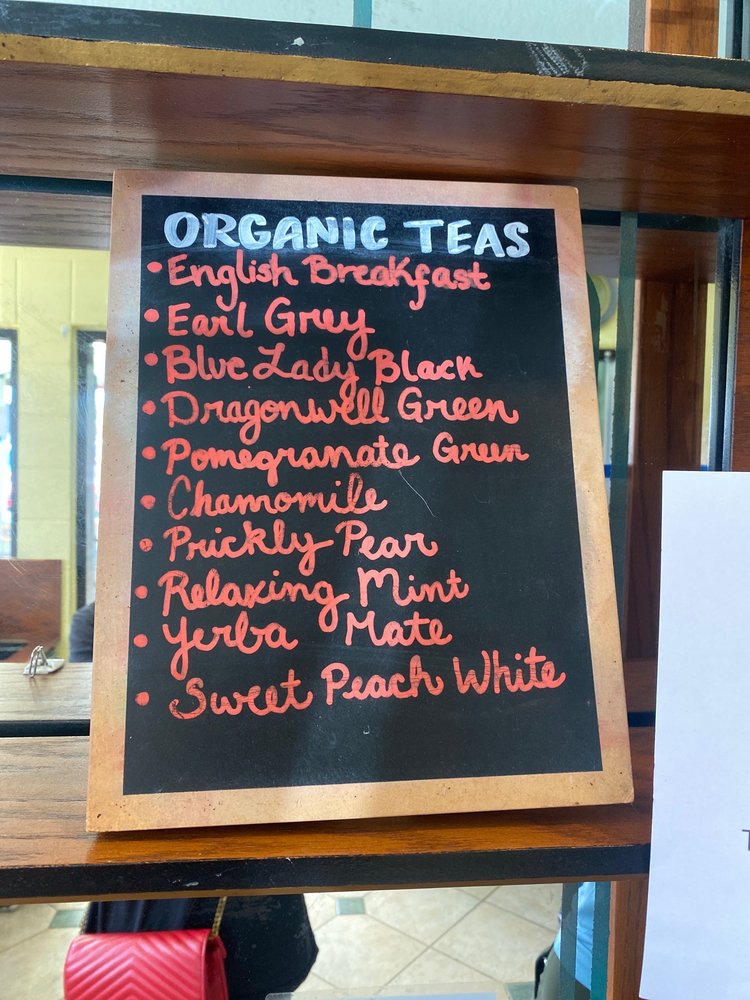 ORGANIC TEAS
• English Breakfast
• Earl Grey
• Blue Lady Black
• Dragonwell Green
• Pomegranate Green
• Chamomile
• Prickly Pear
• Relaxing Mint
• Yerba Mate
• Sweet Peach White